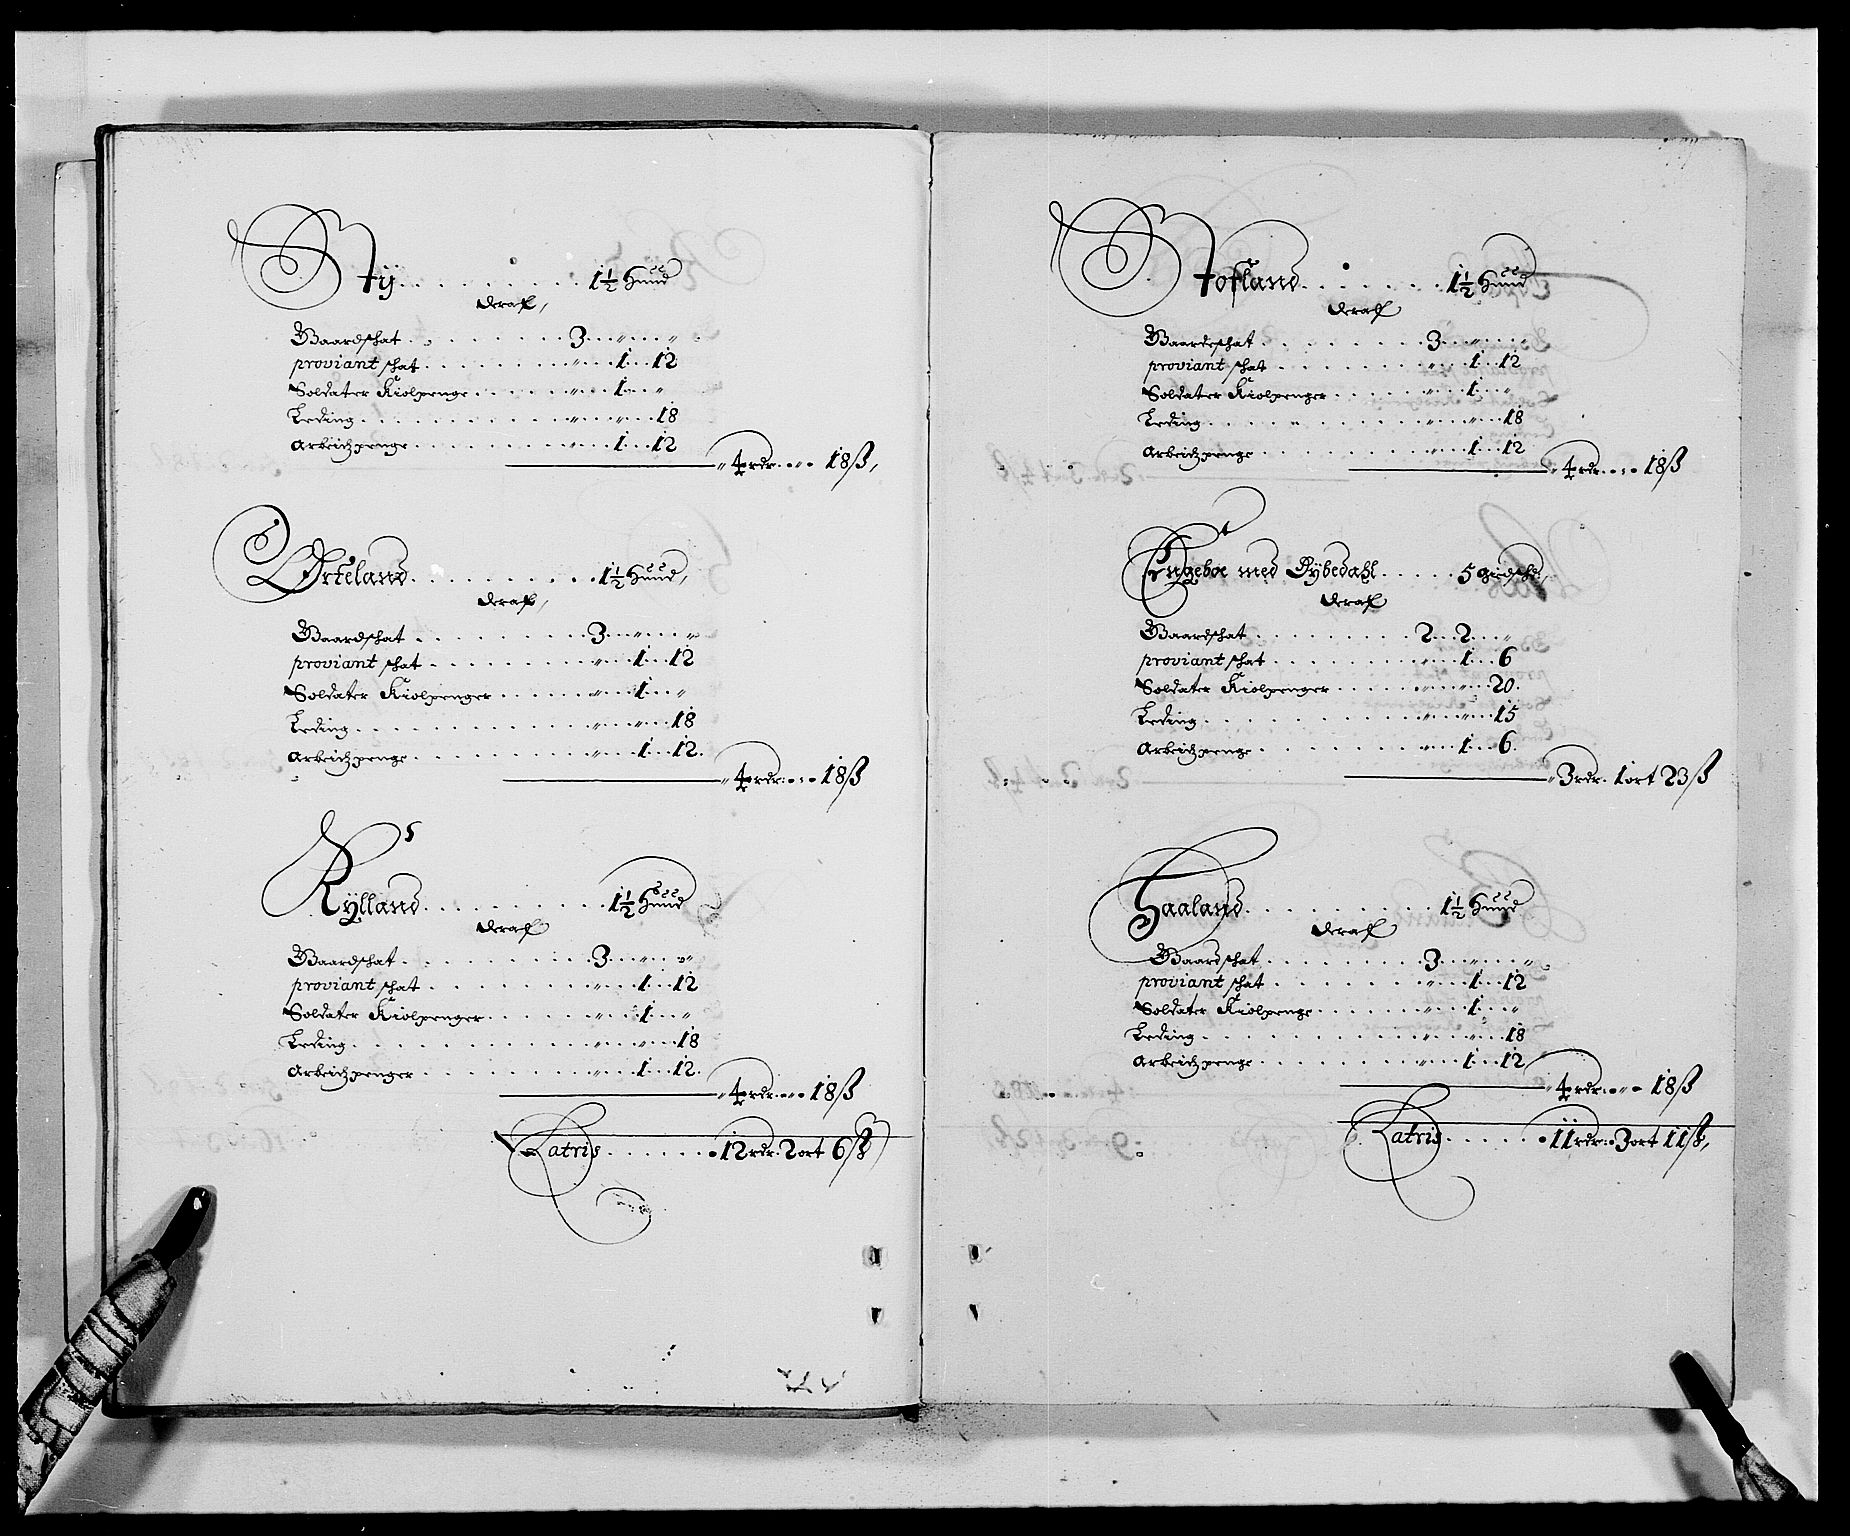 Nÿ . . . . . . . . . 1½ Huud
deraf,
Gaardschat . . . . . . . 3 . . „ . . „
proviant schat . . . . . . . „ . . 1 . . 12
Soldater Kiolpenge . . . . . „ . . 1 . . „
Leding . . . . . . . . „ . . „ . . 18
Arbeidzpenge . . . . . . . „ . . 1 . . 12
„ 4 rdr . „ . 18 ß,
Örteland . . . . . . . . 1½ Huud,
deraf,
Gaardschat . . . . . . . 3 . . „ . . „
proviant schat . . . . . . . „ . . 1 . . 12
Soldater Kiolpenger . . . . . „ . . 1 . . „
Leding . . . . . . . . „ . . „ . . 18
Arbeidzpenge . . . . . . . „ . . 1 . . 12.
„ 4 rdr . „ . 18 ß
Rÿlland . . . . . . . . 1½ Huud
deraf
Gaardschat . . . . . . . 3 . . „ . . „
proviant schat . . . . . . . „ . . 1 . . 12
Soldater Kiolpenger . . . . . „ . . 1 . . „
Leding . . . . . . . . „ . . „ . . 18
Arbeidzpenger . . . . . . . „ . . 1 . . 12.
„ 4 rdr . „ . 18 ß
Latris . . . . . . 12 rdr. 2 ort 6 ß
Hofland . . . . . . . 1½ Huud
deraf
Gaardeschat . . . . . . . 3 . . „ . . „
proviant schat . . . . . . . „ . . 1 . . 12
Soldater Kiolpenger . . . . . „ . . 1 . . „
Leding . . . . . . . . „ . . „ . . 18
Arbeidzpenge . . . . . . . „ . . 1 . . 12
„ 4 rdr . „ . 18 ß
Engeboe med Øÿbedahl . . . . . 5 giedsche,
deraf
Gaardschat . . . . . . . 2 . . 2 . . „
proviant schat . . . . . . . „ . . 1 . . 6
Soldater Kiolpenger . . . . . „ . . „ . . 20.
Leding . . . . . . . . „ . . „ . . 15
Arbeidzpenge . . . . . . . „ . . 1 . . 6.
„ 3 rdr. 1 ort 23 ß
Haaland . . . . . . . . 1½ Huud
deraf
Gaardschat . . . . . . . 3 . . „ . . „
proviant schat . . . . . . . „ . . 1 . . 12
Soldater Kiolpenge . . . . . „ . . 1 . . „
Leding . . . . . . . . „ . . „ . . 18
Arbeidzpenge . . . . . . . „ . . 1 . . 12
„ 4 rdr . „ . 18 ß
Latris . . . . . . 11 rdr. 3 ort 11 ß,